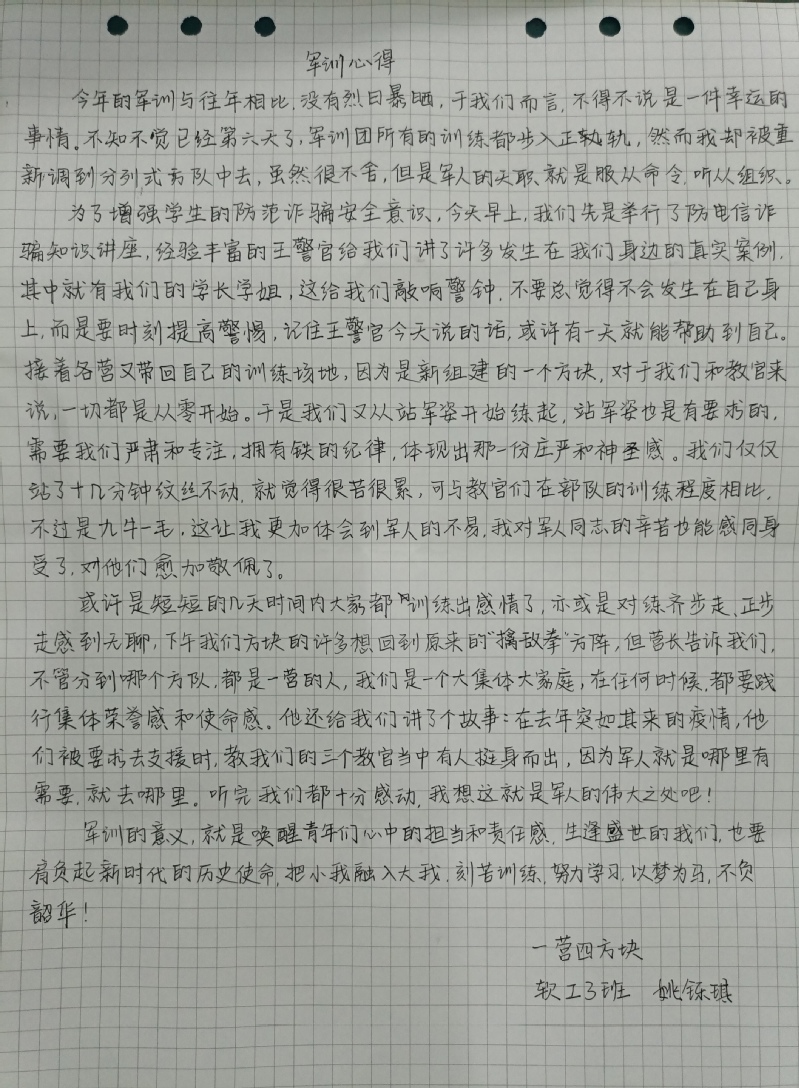 军训心得
今年的军训与往年相比,没有烈日暴晒,于我们而言,不得不说是一件幸运的
事情。不知不觉已经第六天了,军训团所有的训练都步入正轨,然而我却被重
新调到分列式方队中去,虽然很不舍,但是军人的天职就是服从命令,听从组织。
为了增强学生的防范诈骗安全意识,今天早上,我们先是举行了防电信诈
骗知识讲座,经验丰富的王警官给我们讲了许多发生在我们身边的真实案例,
其中就有我们的学长学姐,这给我们敲响警钟,不要总觉得不会发生在自己身
上,而是要时刻提高警惕,记住王警官今天说的话,或许有一天就能帮助到自己。
接着各营又带回自己的训练场地,因为是新组建的一个方块,对于我们和教官来
说,一切都是从零开始。于是我们又从站军姿开始练起,站军姿也是有要求的,
需要我们严肃和专注,拥有铁的纪律,体现出那一份庄严和神圣感。我们仅仅
站了十几分钟纹丝不动,就觉得很苦很累,可与教官们在部队的训练程度相比,
不过是九牛一毛,这让我更加体会到军人的不易,我对军人同志的辛苦也能感同身
受了,对他们愈加敬佩了。
或许是短短的几天时间内大家都训练出感情了,亦或是对练齐步走、正步
走感到无聊,下午我们方块的许多想回到原来的“擒敌拳”方阵,但营长告诉我们,
不管分到哪个方队,都是一营的人,我们是一个大集体大家庭,在任何时候,都要践
行集体荣誉感和使命感。他还给我们讲了个故事:在去年突如其来的疫情,他
们被要求去支援时,教我们的三个教官当中有人挺身而出,因为军人就是哪里有
需要,就去哪里。听完我们都十分感动,我想这就是军人的伟大之处吧!
军训的意义,就是唤醒青年们心中的担当和责任感,生逢盛世的我们,也要
肩负起新时代的历史使命,把小我融入大我,刻苦训练,努力学习,以梦为马,不负
韶华!
一营四方块
软工3班 姚铄琪